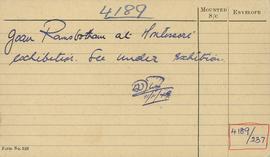 4189
MOUNTED S/C
ENVELOPE
Joan Ramsbotham at Montessori
exhibition. See under exhibition.
4189/237
Form No. 322